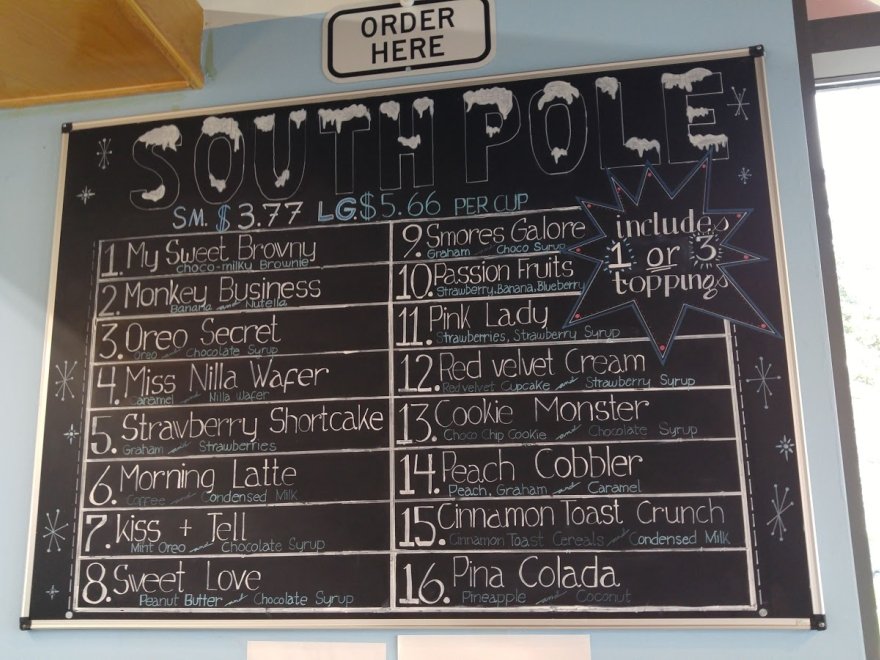 ORDER
HERE
SOUTH POLE
SM. $3.77 LG. $5.66 PER CUP
includes
1 or 3
toppings
1. My Sweet Browny
choco-milky Brownie
2. Monkey Business
Banana and Nutella
3. Oreo Secret
Oreo and Chocolate Syrup
4. Miss Nilla Wafer
Caramel and Nilla Wafer
5. Strawberry Shortcake
Graham and Strawberries
6. Morning Latte
Coffee and Condensed Milk
7. kiss + Tell
Mint Oreo and Chocolate Syrup
8. Sweet Love
Peanut Butter and Chocolate Syrup
9. Smores Galore
Graham and Choco Syrup
10. Passion Fruits
Strawberry, Banana, Blueberry
11. Pink Lady
Strawberries, Strawberry Syrup
12. Red velvet Cream
Red velvet Cupcake and Strawberry Syrup
13. Cookie Monster
Choco Chip Cookie and Chocolate Syrup
14. Peach Cobbler
Peach, Graham and Caramel
15. Cinnamon Toast Crunch
Cinnamon Toast Cereals and Condensed Milk
16. Pina Colada
Pineapple and Coconut